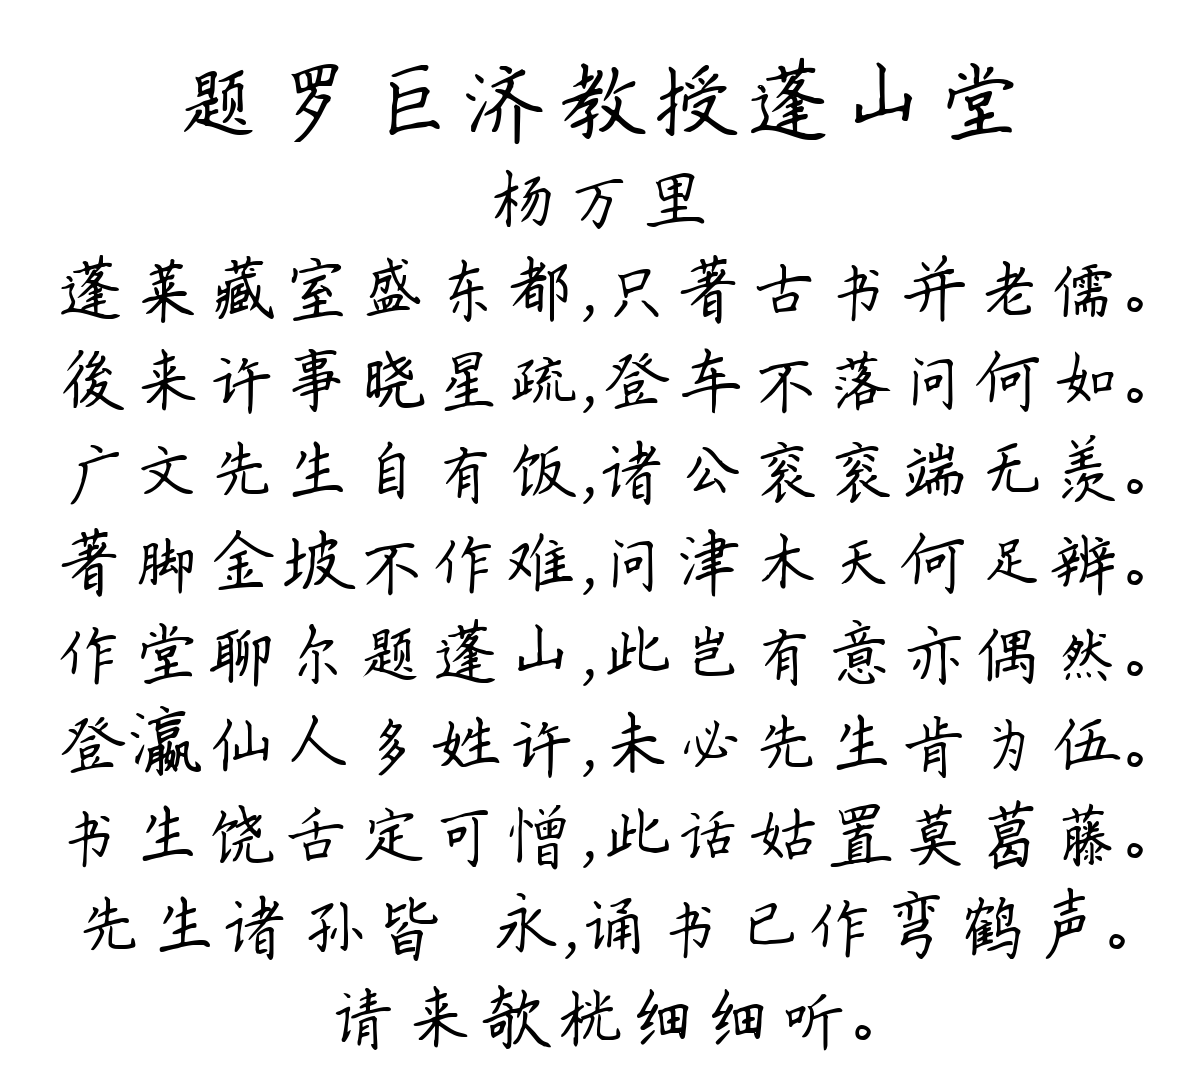 题罗巨济教授蓬山堂
杨万里
蓬莱藏室盛东都,只著古书并老儒。
後来许事晓星疏,登车不落问何如。
广文先生自有饭,诸公衮衮端无羡。
著脚金坡不作难,问津木天何足辨。
作堂聊尔题蓬山,此岂有意亦偶然。
登瀛仙人多姓许,未必先生肯为伍。
书生饶舌定可憎,此话姑置莫葛藤。
先生诸孙皆 永,诵书已作弯鹤声。
请来欹桄细细听。